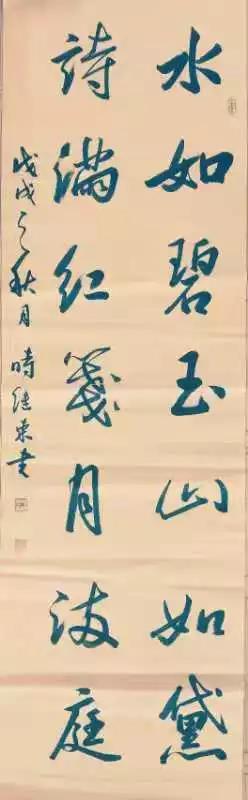 水如碧玉山如黛
詩满红笺月满庭
戊戌之秋月 時继东书